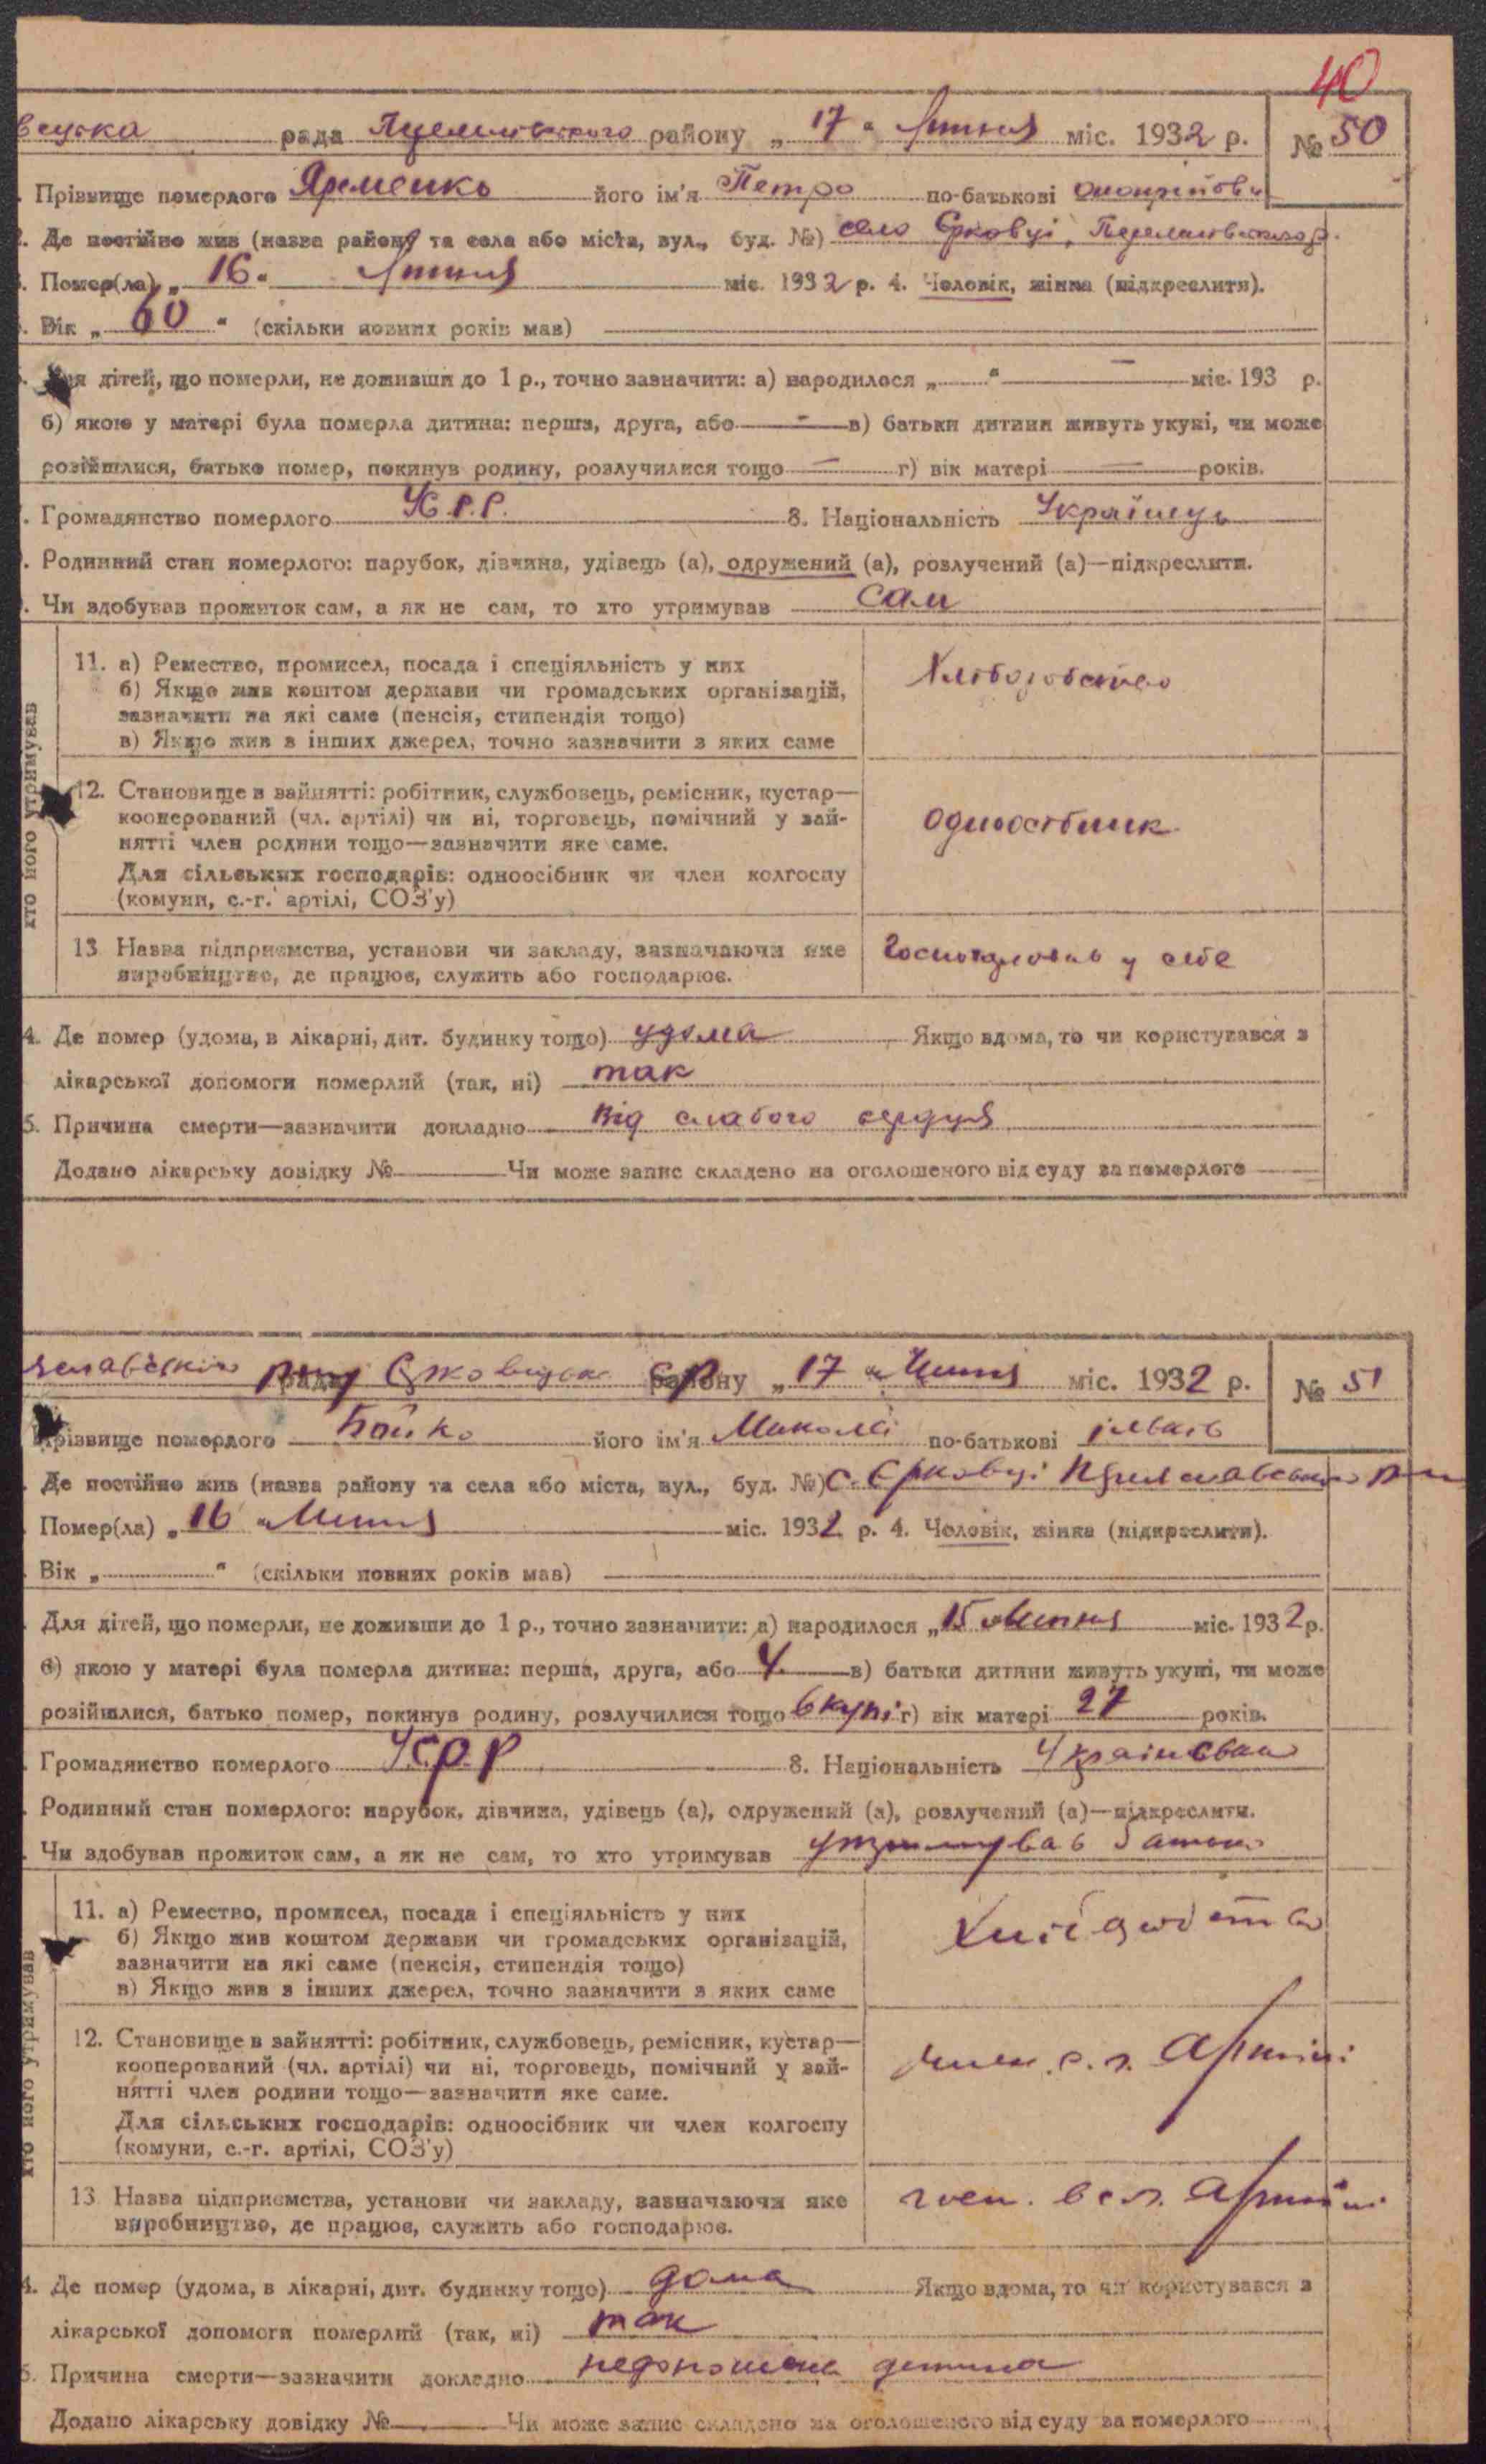 40
вецька рада Переяславського району „ 17 “ Липня міс. 1932 р. № 50
Прізвище померлого Яременко його ім'я Петро по-батькові Оноприйови
Де постійно жив (назва району та села або міста, вул., буд. №) село Єрковці, Переяславського р.
Помер(ла) „ 16 “ Липня міс. 1932 р. 4. Чоловік, жінка (підкреслити).
Вік „ 60 “ (скільки повних років мав)
Для дітей, що померли, не доживши до 1 р., точно зазначити: а) народилося „ “ — міс. 193 р.
б) якою у матері була померла дитина: перша, друга, або — в) батьки дитини живуть укупі, чи може
розійшлися, батько помер, покинув родину, розлучилися тощо — г) вік матері — років.
Громадянство померлого У.С.Р.Р. 8. Національність Українець
Родинний стан померлого: парубок, дівчина, удівець (а), одружений (а), розлучений (а)—підкреслити.
Чи здобував прожиток сам, а як не сам, то хто утримував сам
хто його утримував
11. а) Ремество, промисел, посада і спеціяльність у них Хліборобство
б) Якщо жив коштом держави чи громадських організацій,
зазначити на які саме (пенсія, стипендія тощо)
в) Якщо жив з інших джерел, точно зазначити з яких саме
12. Становище в зайнятті: робітник, службовець, ремісник, кустар—
кооперований (чл. артілі) чи ні, торговець, помічний у зай- одноосібник
нятті член родини тощо—зазначити яке саме.
Для сільських господарів: одноосібник чи член колгоспу
(комуни, с.-г. артілі, СОЗ'у)
13 Назва підприємства, установи чи закладу, зазначаючи яке Господарював у себе
виробництво, де працює, служить або господарює.
4. Де помер (удома, в лікарні, дит. будинку тощо) удома Якщо вдома, то чи користувався з
лікарської допомоги померлий (так, ні) так
5. Причина смерти—зазначити докладно Від слабого серця
Додано лікарську довідку № Чи може запис складено на оголошеного від суду за померлого
яславського рну Єрковецька с/р „ 17 “ Липня міс. 1932 р. № 51
Прізвище померлого Бойко його ім'я Микола по-батькові
Де постійно жив (назва району та села або міста, вул., буд. №) с. Єрковці Переяславського р-н
Помер(ла) „ 16 “ Липня міс. 1932 р. 4. Чоловік, жінка (підкреслити).
Вік „ “ (скільки повних років мав)
Для дітей, що померли, не доживши до 1 р., точно зазначити: а) народилося „ 15 “ Липня міс. 1932 р.
б) якою у матері була померла дитина: перша, друга, або 4. в) батьки дитини живуть укупі, чи може
розійшлися, батько помер, покинув родину, розлучилися тощо вкупі г) вік матері 27 років.
Громадянство померлого У.С.Р.Р 8. Національність Українська
Родинний стан померлого: парубок, дівчина, удівець (а), одружений (а), розлучений (а)—підкреслити.
Чи здобував прожиток сам, а як не сам, то хто утримував утримував батько
хто його утримував
11. а) Ремество, промисел, посада і спеціяльність у них
б) Якщо жив коштом держави чи громадських організацій,
зазначити на які саме (пенсія, стипендія тощо)
в) Якщо жив з інших джерел, точно зазначити з яких саме
12. Становище в зайнятті: робітник, службовець, ремісник, кустар—
кооперований (чл. артілі) чи ні, торговець, помічний у зай- член с. г. артілі
нятті член родини тощо—зазначити яке саме.
Для сільських господарів: одноосібник чи член колгоспу
(комуни, с.-г. артілі, СОЗ'у)
13 Назва підприємства, установи чи закладу, зазначаючи яке в с.г. артілі
виробництво, де працює, служить або господарює.
4. Де помер (удома, в лікарні, дит. будинку тощо) дома Якщо вдома, то чи користувався з
лікарської допомоги померлий (так, ні) так
5. Причина смерти—зазначити докладно недоношена дитина
Додано лікарську довідку № Чи може запис складено на оголошеного від суду за померлого